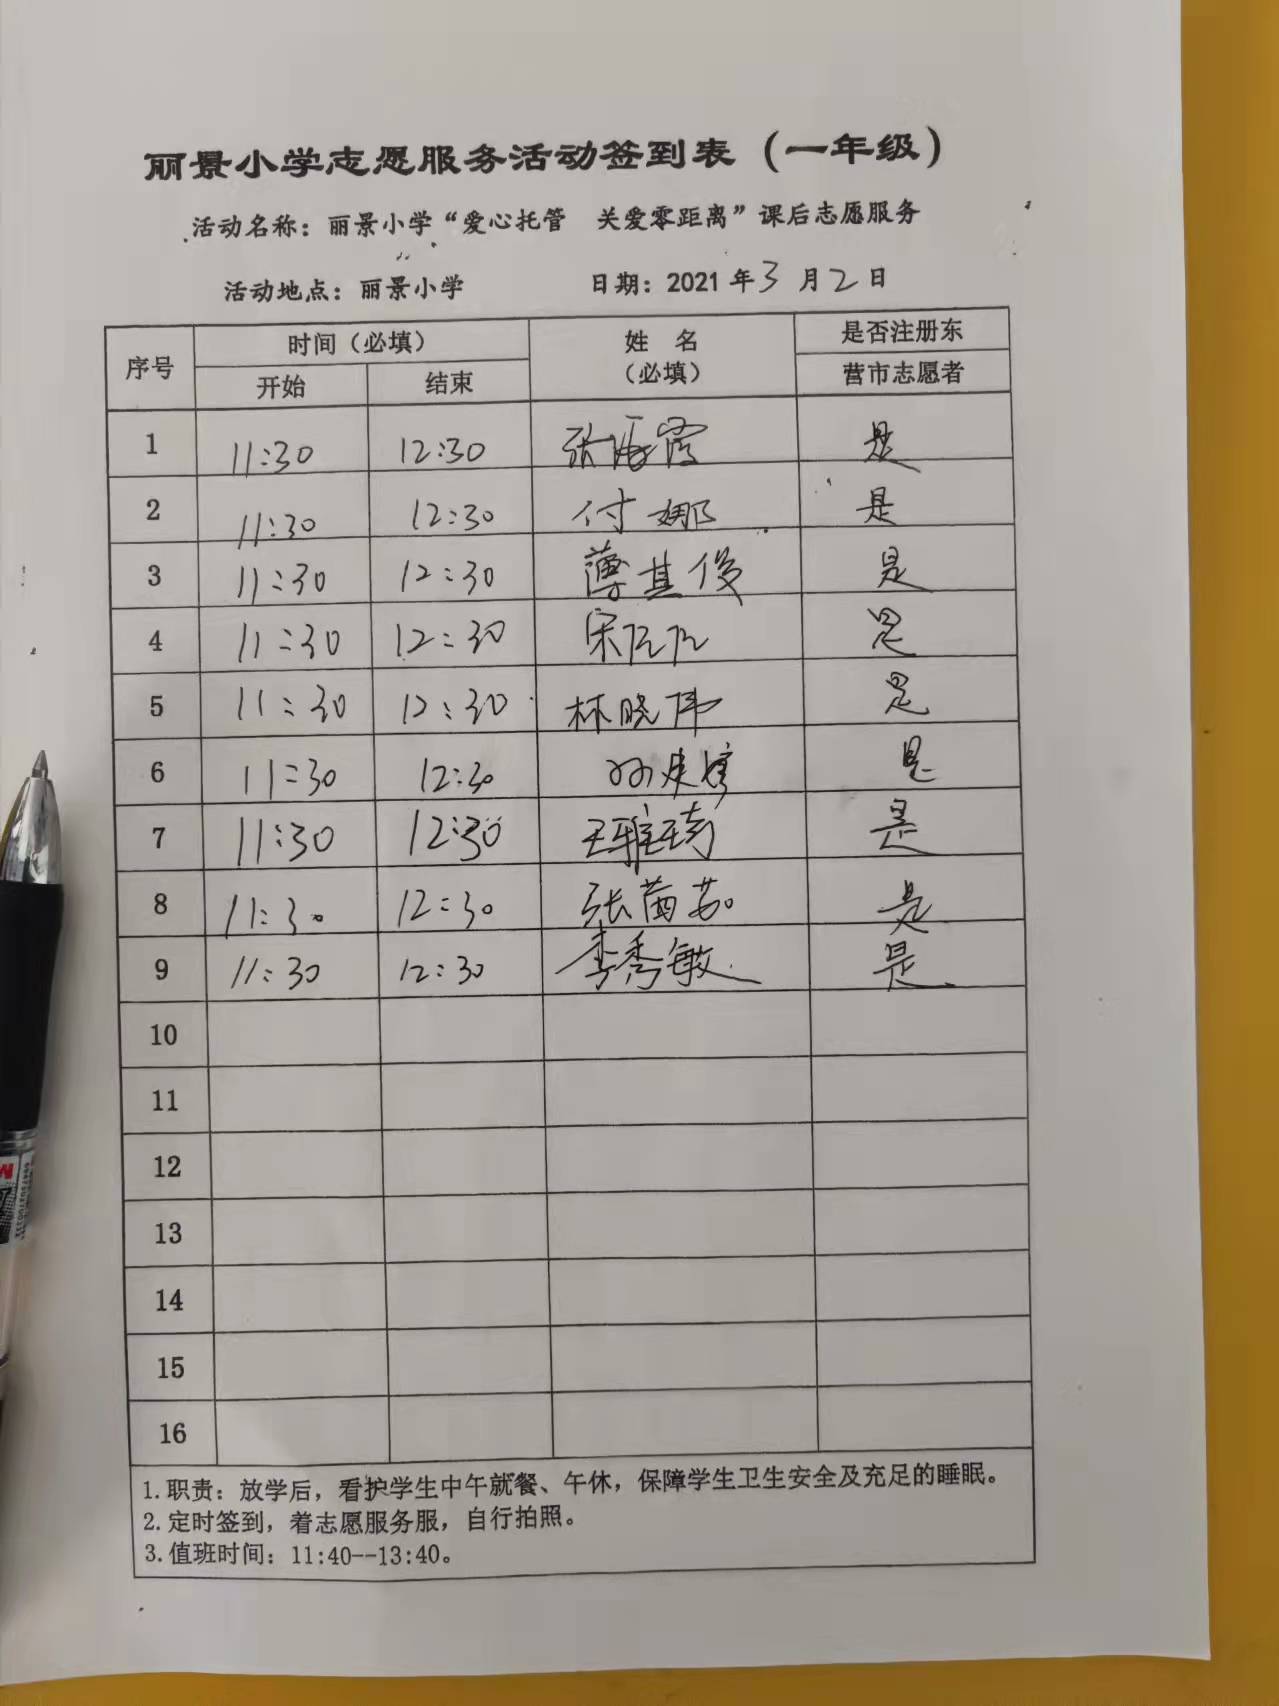 丽景小学志愿服务活动签到表（一年级）
活动名称：丽景小学“爱心托管 关爱零距离”课后志愿服务
活动地点：丽景小学 日期：2021年3月2日
序号 时间（必填） 姓 名 是否注册东
开始 结束 （必填） 营市志愿者
1 11:30 12:30 张海霞 是
2 11:30 12:30 付娜 是
3 11:30 12:30 薄其俊 是
4 11:30 12:30 宋 是
5 11:30 12:30 林晓伟 是
6 11:30 12:30 是
7 11:30 12:30 王雅琦 是
8 11:30 12:30 张茜茹 是
9 11:30 12:30 李秀敏 是
10
11
12
13
14
15
16
1.职责：放学后，看护学生中午就餐、午休，保障学生卫生安全及充足的睡眠。
2.定时签到，着志愿服务服，自行拍照。
3.值班时间：11:40--13:40。